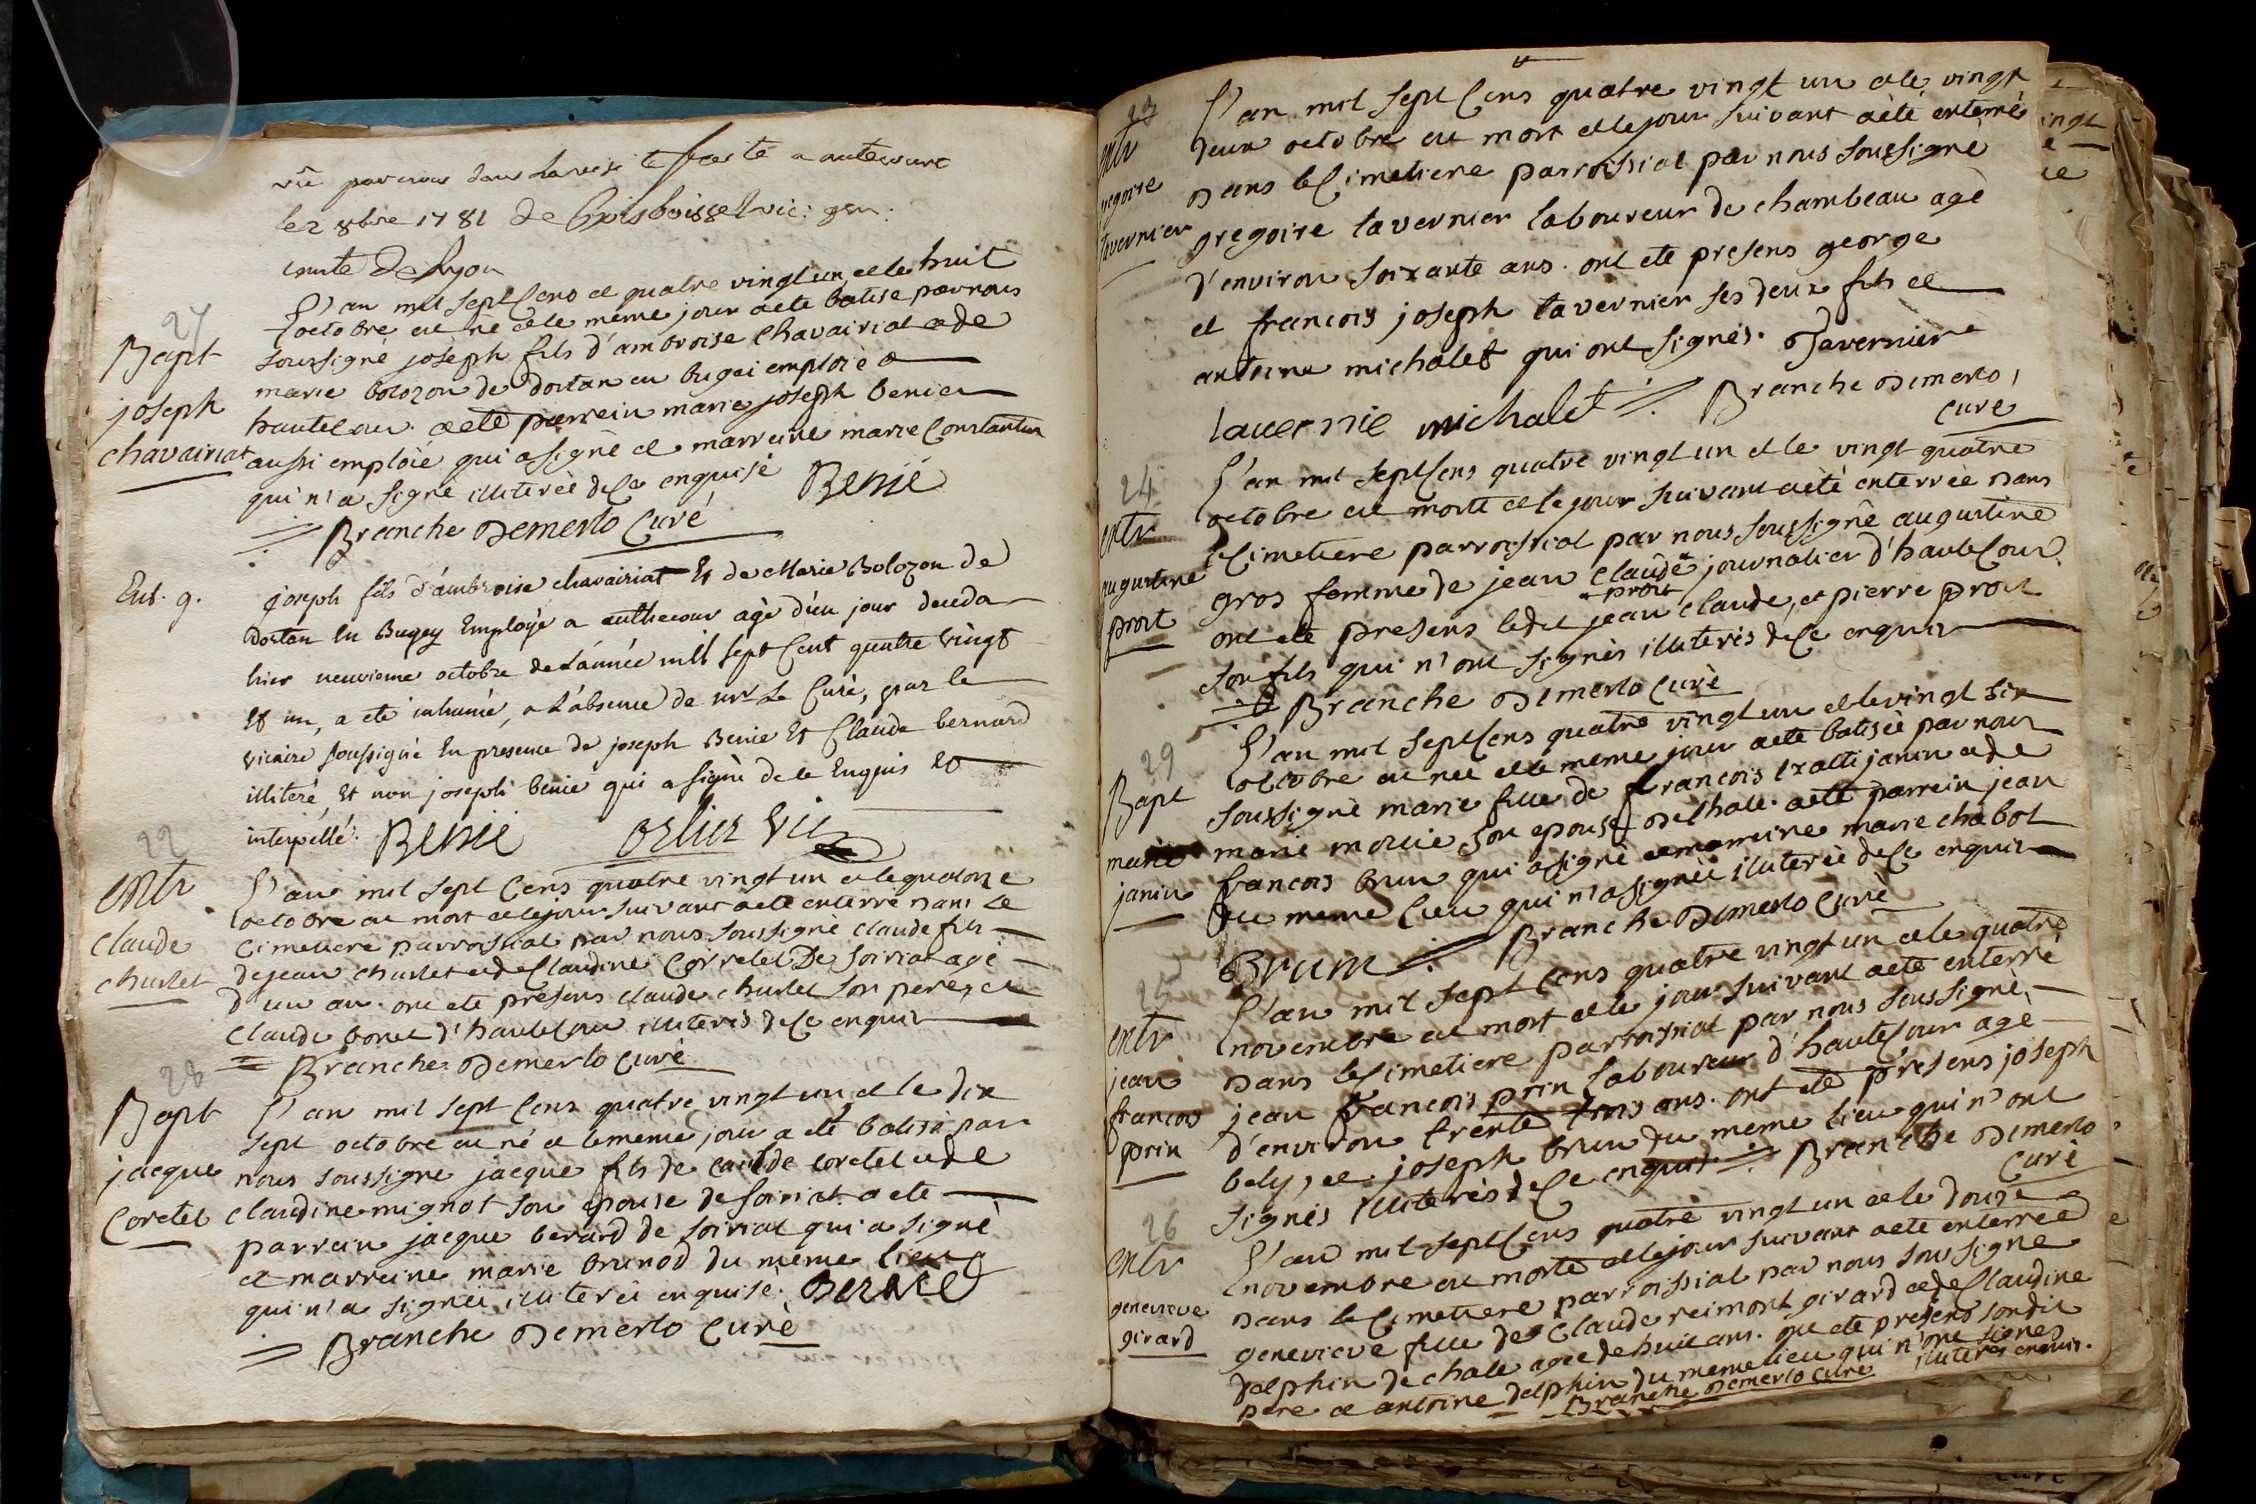 vû par nous dans la visite faite a autecourt
le 2 8bre 1781 de vic: gen:
comte de Lyon
27
Bapt
joseph
chavairiat
L'an mil sept cens et quatre vingt un et le huit
octobre est né et le même jour a été batisé par nous
soussigné joseph fils d'ambroise chavairiat et de
marie bolozon de dortan en bugei emploié a
hautecour. a été parrein marie joseph benier
aussi emploié qui a signé et marreine marie constantin
qui n'a signé illiterée de ce enquise Benie
Branche Demerlo curé
Ent. 9.
joseph fils d'ambroise chavairiat Et de Marie Bolozon de
dortan En Bugey Employé a authecour agé d'un jour decedé
hier neuvieme octobre de l'année mill sept Cent quatre vingt
Et un, a été inhumé, a l'absence de mr Le Curé, par le
vicaire soussigné En presence de joseph Benie Et Claude bernard
illiteré, Et non joseph benie qui a signé de ce Enquis Et
interpellé. Benie orlier vic
22
entr
claude
churlet
L'an mil sept cens quatre vingt un et le quatorze
octobre est mort et le jour suivant a été enterré dans le
cimetiere parroissial par nous soussigné claude fils
de jean churlet et de Claudine Corretel De soiriat agé
d'un an. ont été présens claude churlet son pere, et
claude boret d'hautecour illiterés de ce enquis
Branche Demerlo curé
28
Bapt
jacque
Coretel
L'an mil sept cens quatre vingt un et le dix
sept octobre est né et le meme jour a été batisé par
nous soussigné jacque fils de caude coretel et de
claudine mignot son epouse de soiriat a été
parrain jacque berard de soiriat qui a signé
et marreine marie brunod du même lieu
qui n'a signée illiterée enquise. Berard
Branche Demerlo curé
23
entr
gregoire
tavernier
L'an mil sept cens quatre vingt un et le vingt
deux octobre est mort et le jour suivant a été enterré
dans le cimetiere parroissial par nous soussigné
gregoire tavernier laboureur de chambeau agé
d'environ soixante ans. ont été presens george
et francois joseph tavernier ses deux fils et
antoine michalet qui ont signés. Tavernier
tavernie michalet Branche Demerlo
curé
24
entr
augustine
prost
L'an mil sept cens quatre vingt un et le vingt quatre
octobre est morte et le jour suivant a été enterrée dans
le cimetiere parroissial par nous soussigné augustine
gros femme de jean claude prost journalier d'hautecour
ont été presens ledit jean claude, et pierre prost
son fils qui n'ont signés illiterés de ce enquis
Branche Demerlo curé
29
Bapt
marie
janin
L'an mil sept cens quatre vingt un et le vingt six
octobre est née et le meme jour a été batisée par nous
soussigné marie fille de francois janin et de
marie morie son epouse de chale. a été parrein jean
francois brun qui a signé et marreine marie chabot
du meme lieu qui n'a signée illiterée de ce enquise
Brum Branche Demerlo curé
25
entr
jean
francois
prin
L'an mil sept cens quatre vingt un et le quatre
novembre est mort et le jour suivant a été enterré
dans le cimetiere parroissial par nous soussigné
jean francois prin laboureur d'hautecour agé
d'environ trente trois ans. ont été présens joseph
bely, et joseph brun du meme lieu qui n'ont
signés illiterés de ce enquis. Branche Demerlo
curé
26
entr
genevieve
girard
L'an mil sept cens quatre vingt un et le douze
novembre est morte et le jour suivant a été enterrée
dans le cimetiere parroissial par nous soussigné
genevieve fille de Claude reimont girard et de Claudine
delphin de chale agée de huit ans. ont été présens sondit
pere et antoine delphin du meme lieu qui n'ont signés
illiterés enquis.
Branche Demerlo curé